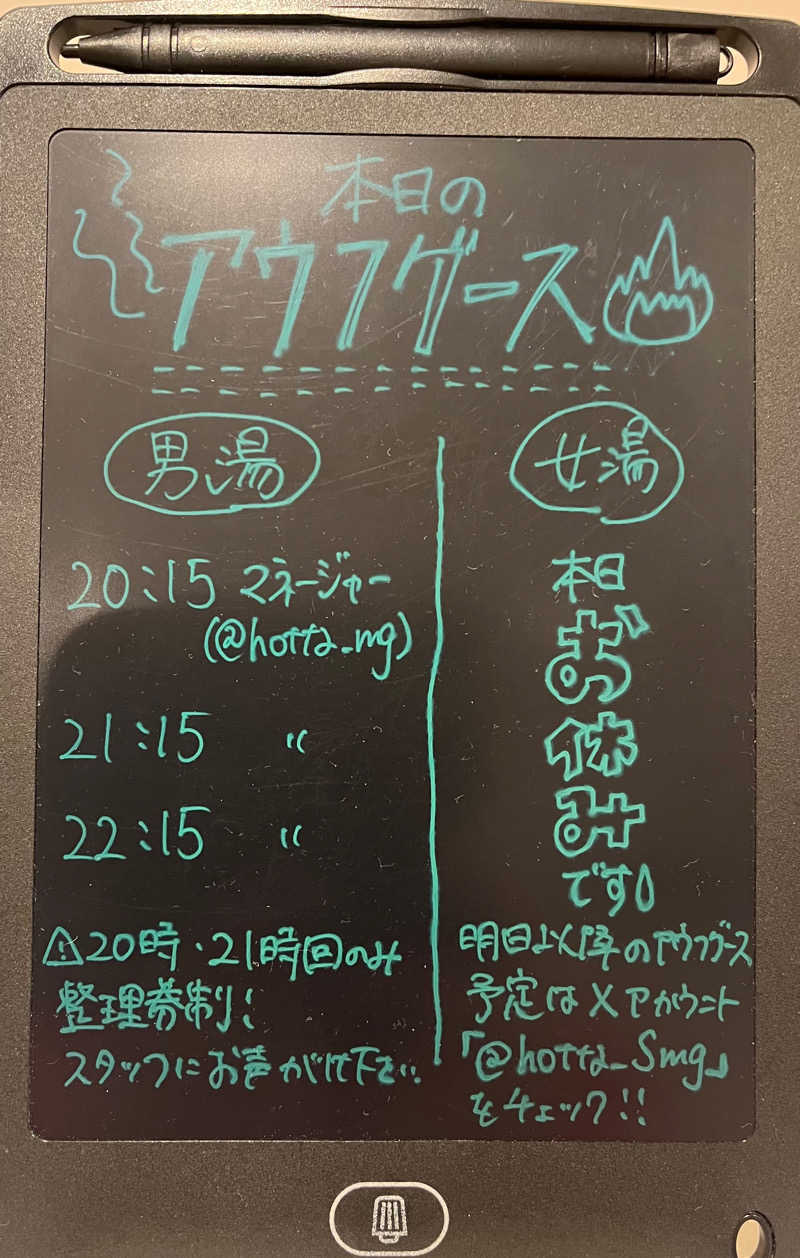 本日の
アウフグース
男湯
20:15 マネージャー
(@hotta_mg)
21:15 〃
22:15 〃
⚠20時・21時回のみ
整理券制!
スタッフにお声がけ下さい.
女湯
本日
お
休
み
です
明日以降のアウフグース
予定はXアカウント
「@hotta_Smg」
をチェック!!